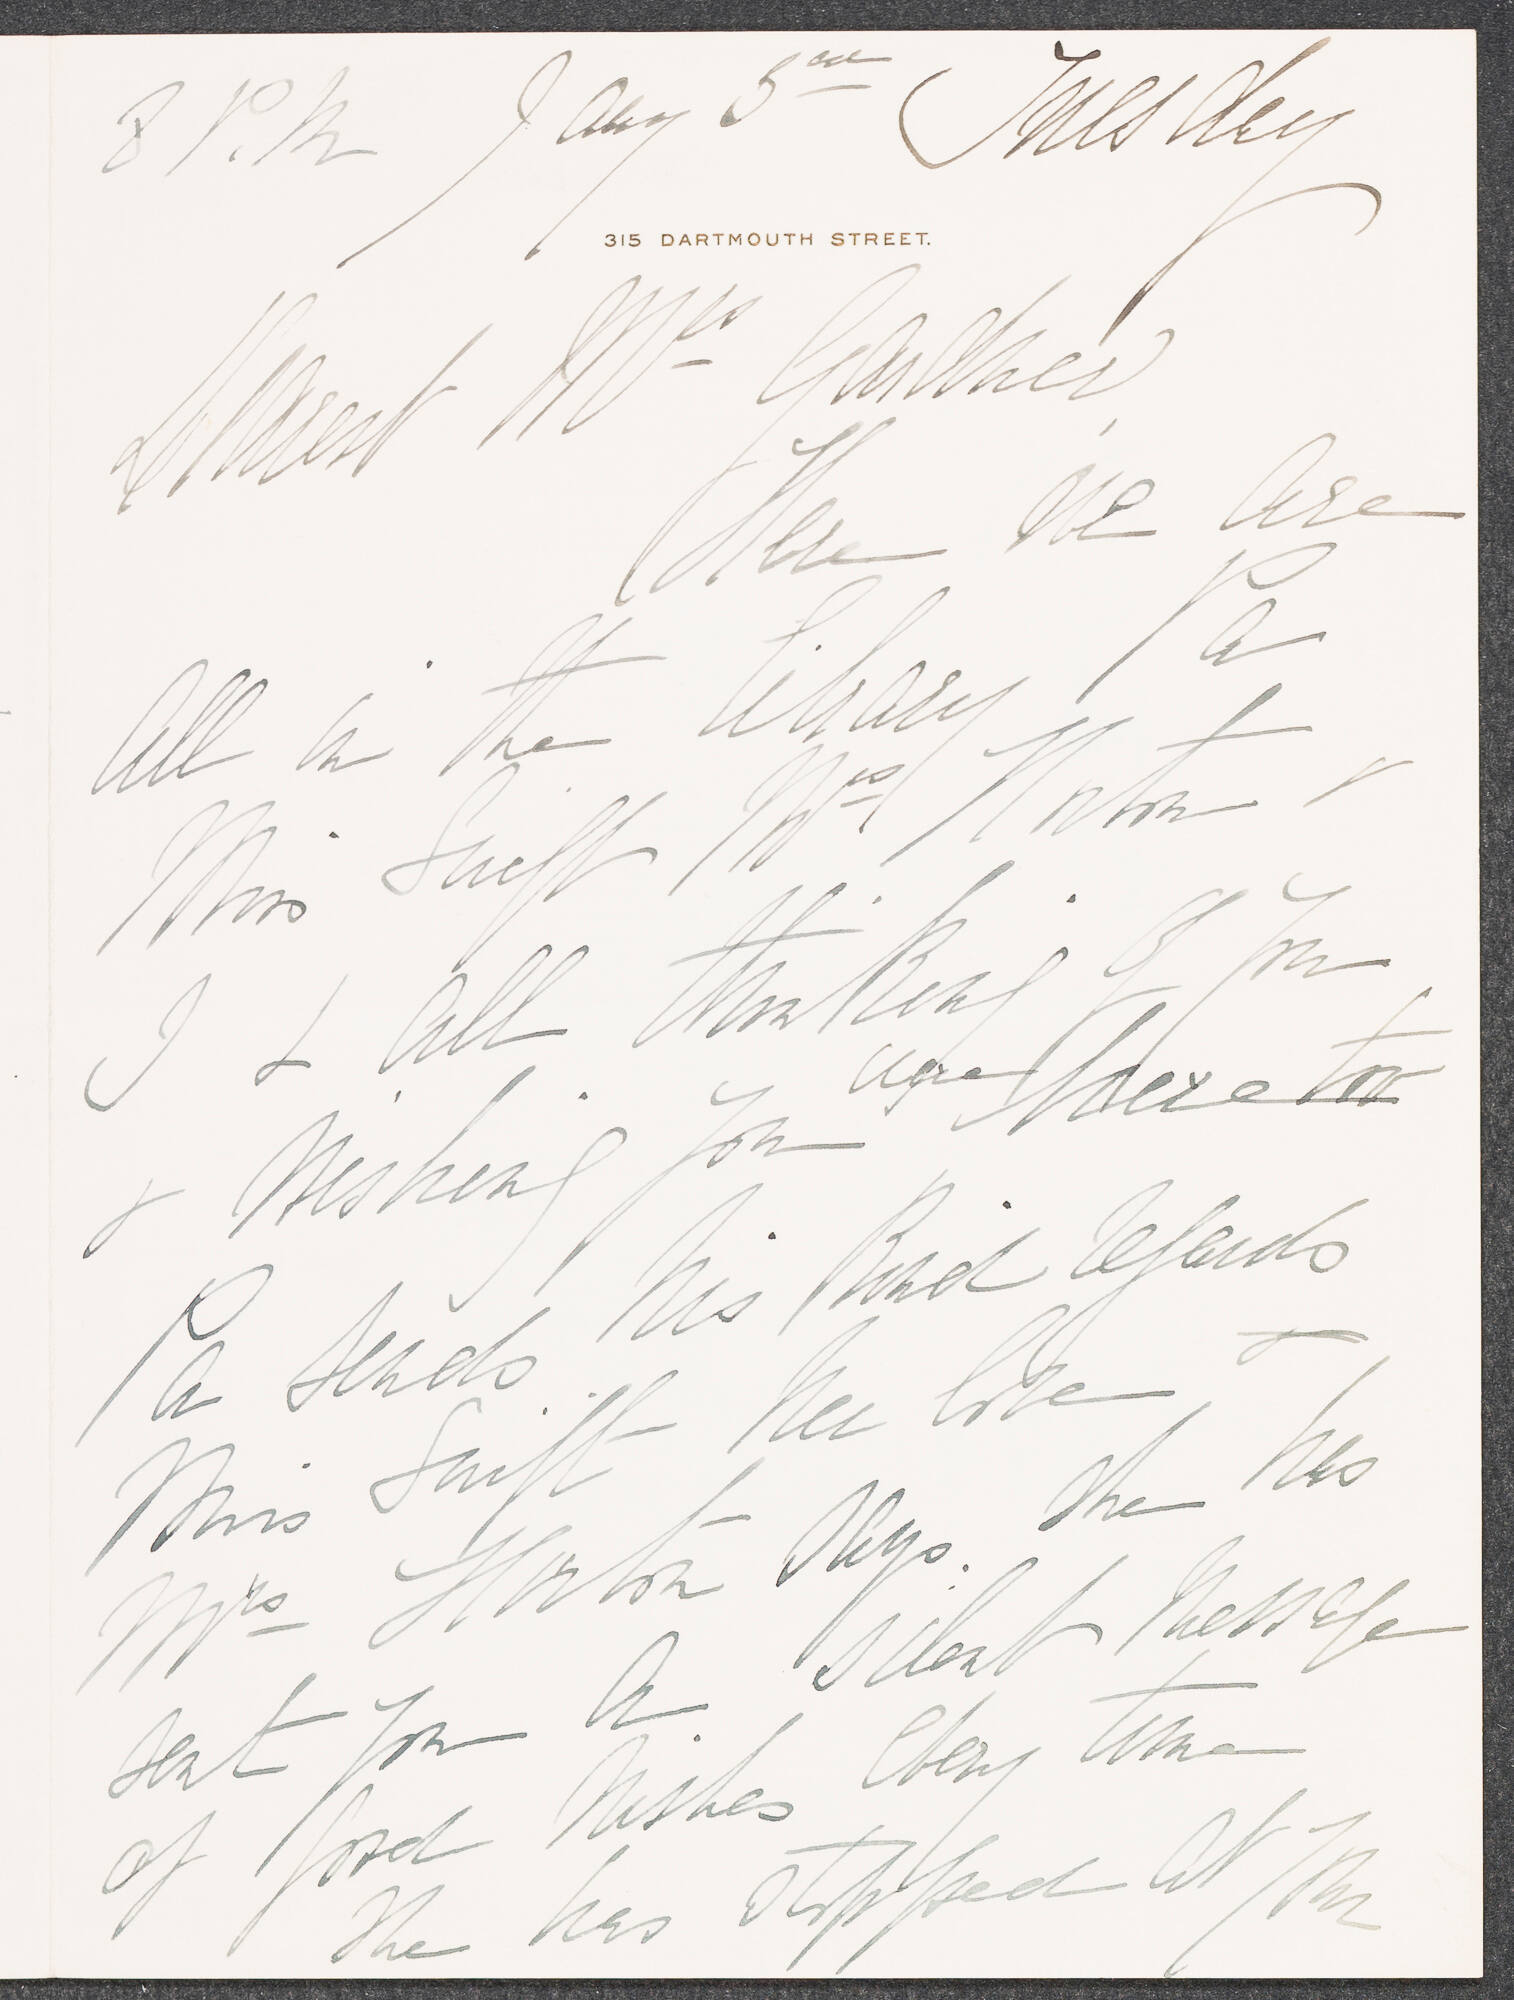 8 P.M Jany 5th Tuesday
315 DARTMOUTH STREET.
Dearest Mrs Gardner,
Here we are
all in the library Pa
Miss Swift Mrs Horton &
I & all thinking of you
& wishing you were here too
Pa sends his kind regards
Miss Swift her love &
Mrs Horton says she has
sent you a silent message
of good wishes every time
she has stopped at your